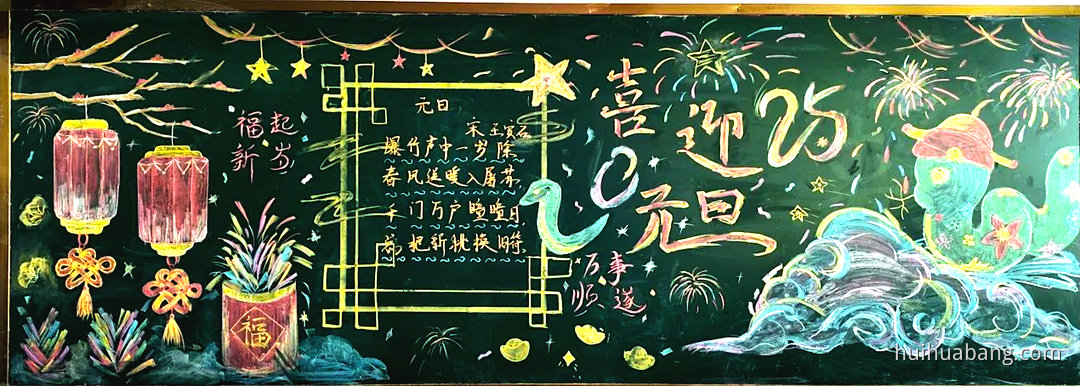 福起
新岁
福
元日
宋 王安石
爆竹声中一岁除
春风送暖入屠苏
千门万户曈曈日
总把新桃换旧符
喜迎
2025
元旦
万事
顺遂
huihuabang.com